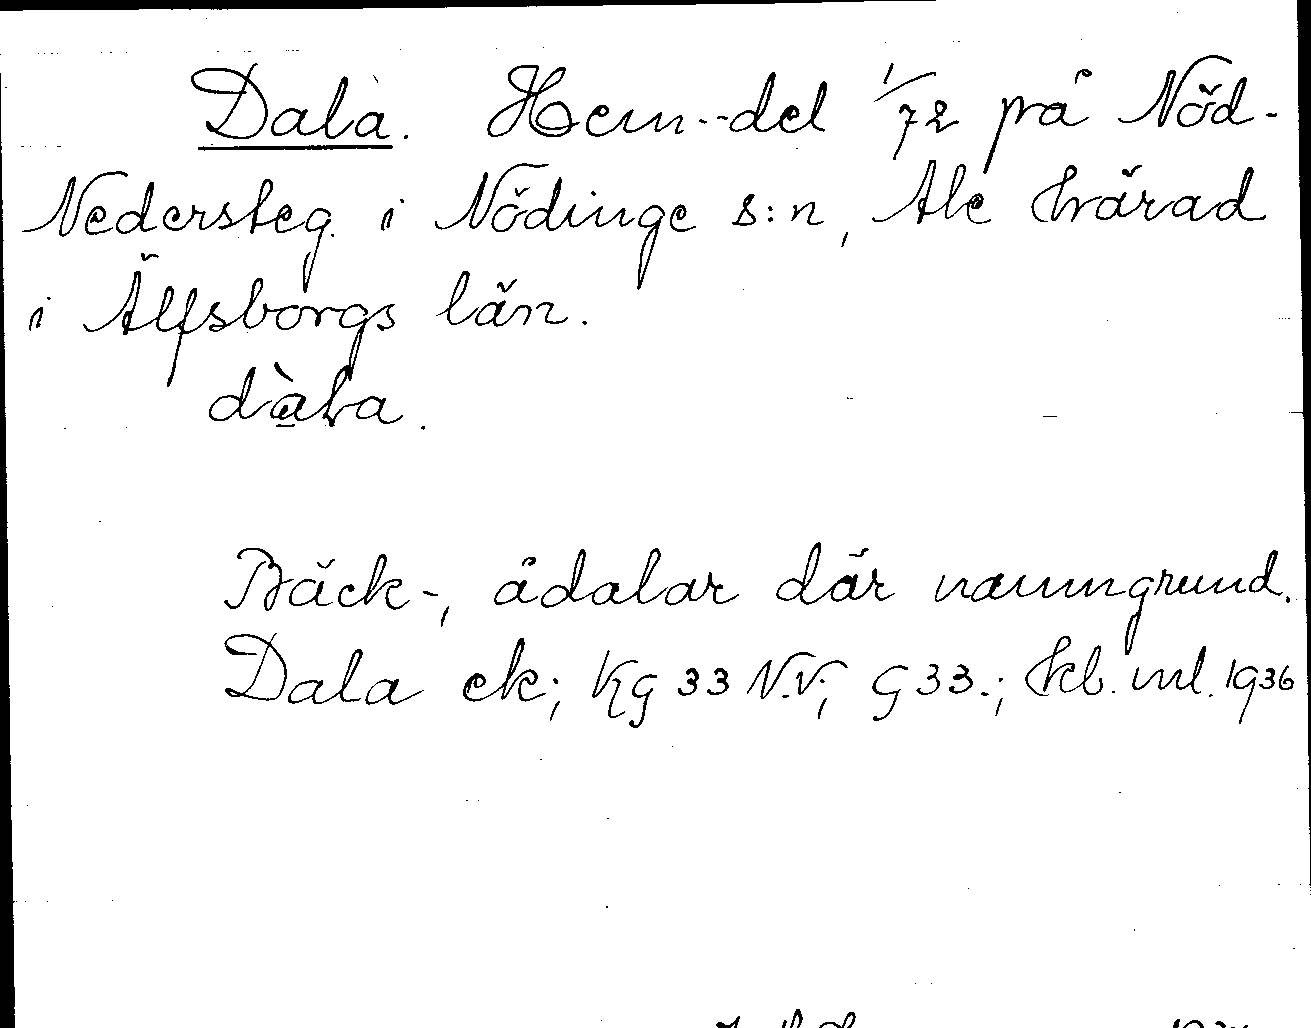 Dala. Hem.-del 1/72 på Nöd-
Nedersteg i Nödinge s:n, Ale härad
i Älfsborgs län.
dàla.
Bäck-, ådalar där namngrund.
Dala ek; Kg 33 N.V.; G 33.; kb. ml. 1936